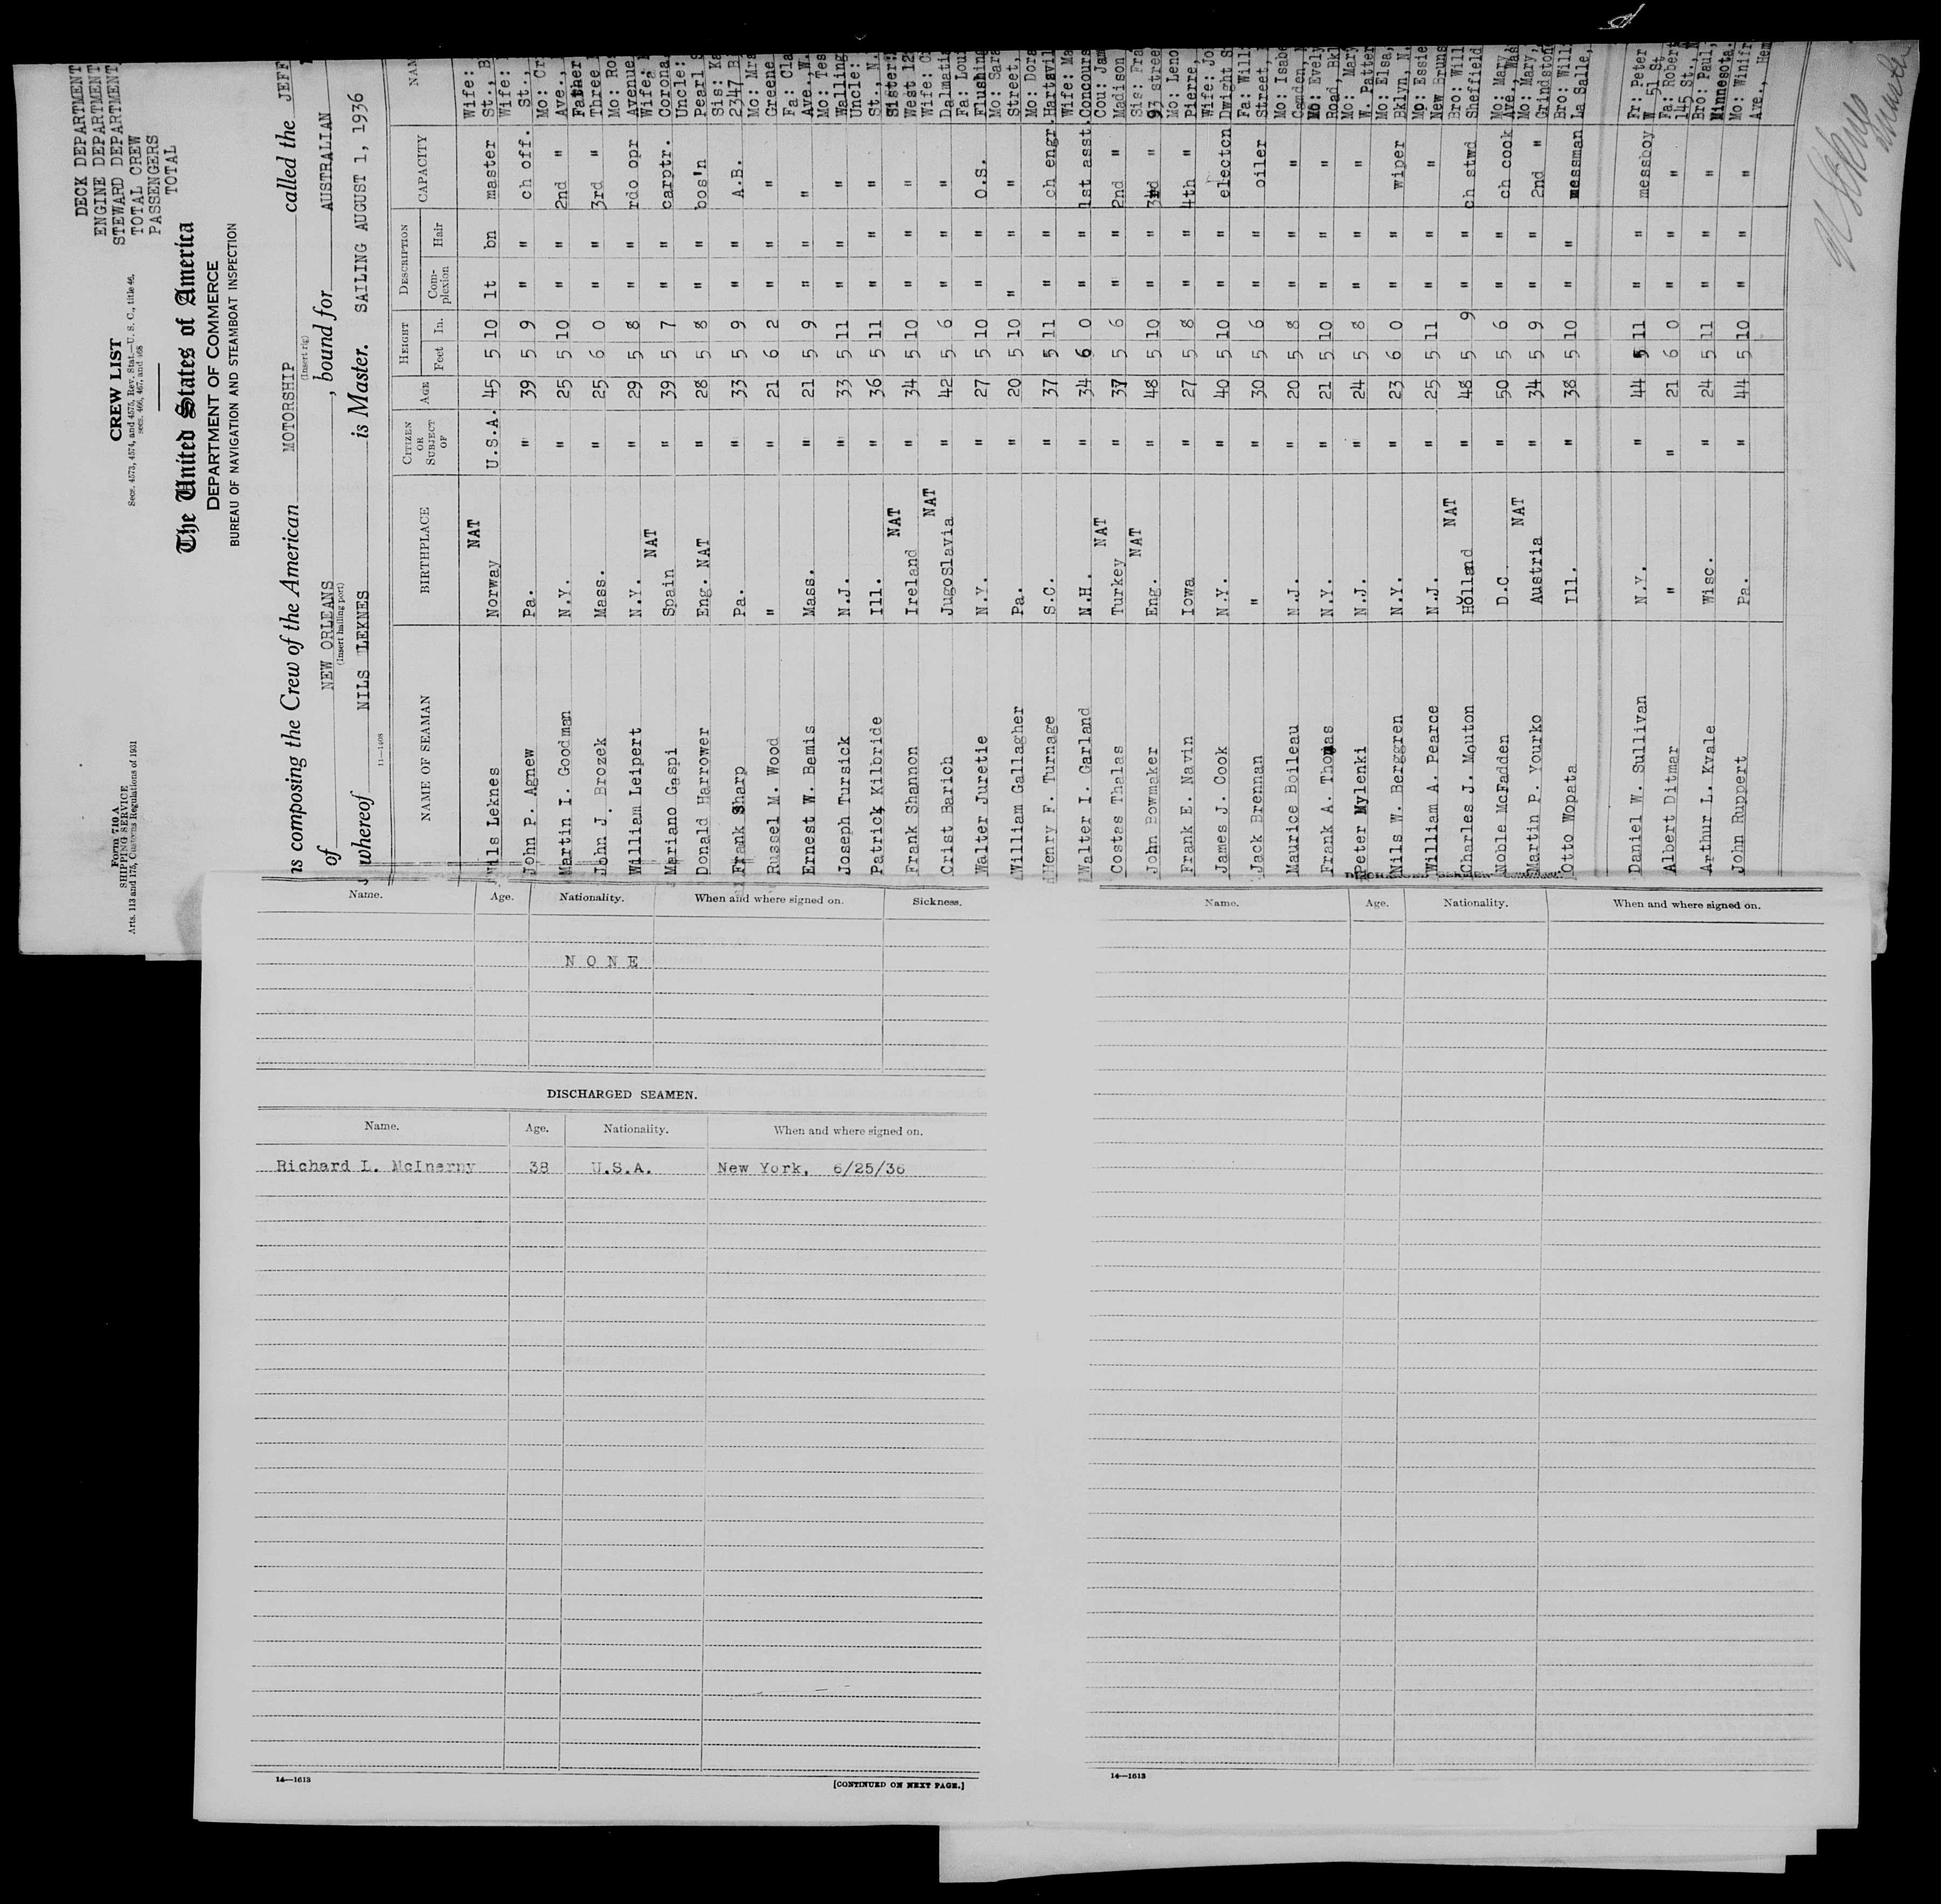 DECK DEPARTMENT
ENGINE DEPARTMENT
STEWARD DEPARTMENT
TOTAL CREW
PASSENGERS
TOTAL
Form 710 A
SHIPPING SERVICE
Arts. 113 and 175, Customs Regulations of 1931
CREW LIST
Secs. 4573, 4574, and 4575, Rev. Stat.—U. S. C., title 46,
secs. 466, 467, and 468
The United States of America
DEPARTMENT OF COMMERCE
BUREAU OF NAVIGATION AND STEAMBOAT INSPECTION
as composing the Crew of the American MOTORSHIP called the JEFF
(Insert rig)
of NEW ORLEANS , bound for AUSTRALIAN
(Insert hailing port)
whereof NILS LEKNES is Master. SAILING AUGUST 1, 1936
11—1408
NAME OF SEAMAN BIRTHPLACE CITIZEN OR SUBJECT OF AGE HEIGHT Feet In. DESCRIPTION Com-plexion Hair CAPACITY NAM
Nils Leknes Norway NAT U.S.A. 45 5 10 lt bn master Wife: St., B
John P. Agnew Pa. " 39 5 9 " " ch off. Wife: St.,
Martin I. Goodman N.Y. " 25 5 10 " " 2nd " Mo: Cr Ave.,
John J. Brozek Mass. " 25 6 0 " " 3rd " Father Three
William Leipert N.Y. " 29 5 8 " " rdo opr Mo: Ro Avenue
Mariano Gaspi Spain NAT " 39 5 7 " " carptr. Wife: Corona
Donald Harrower Eng. NAT " 28 5 8 " " bos'n Uncle: Pearl S
Frank Sharp Pa. " 33 5 9 " " A.B. Sis: Ka 2347 B
Russel M. Wood " " 21 6 2 " " " Mo: Mrs Greene
Ernest W. Bemis Mass. " 21 5 9 " " " Fa: Cla Ave.,W.
Joseph Tursick N.J. " 33 5 11 " " " Mo: Tes Walling
Patrick Kilbride Ill. " 36 5 11 " " " Uncle: St., N.
Frank Shannon Ireland NAT " 34 5 10 " " " Sister: West 12
Crist Barich JugoSlavia NAT " 42 5 6 " " " Wife: Dalmati
Walter Juretie N.Y. " 27 5 10 " " O.S. Fa: Lou Flushing
William Gallagher Pa. " 20 5 10 " " " Mo: Sara Street,
Henry F. Turnage S.C. " 37 5 11 " " ch engr Mo: Dora Hartsvil
Walter I. Garland N.H. " 34 6 0 " " 1st asst. Wife: Ma Concours
Costas Thalas Turkey NAT " 37 5 6 " " 2nd " Cou: Jam Madison
John Bowmaker Eng. NAT " 48 5 10 " " 3rd " Sis: Fra 93 stree
Frank E. Navin Iowa " 27 5 8 " " 4th " Mo: Leno Pierre,
James J. Cook N.Y. " 40 5 10 " " electcn Wife: Jo Dwight S
Jack Brennan " " 30 5 6 " " oiler Fa: Will Street,
Maurice Boileau N.J. " 20 5 8 " " " Mo: Isabe Camden,
Frank A. Thomas N.Y. " 21 5 10 " " " Mo: Evely Road, Bkl
Peter Mylenki N.J. " 24 5 8 " " " Mo: Mary W. Patter
Nils W. Berggren N.Y. " 23 6 0 " " wiper Mo: Elsa, Bklyn, N.
William A. Pearce N.J. " 25 5 11 " " " Mo: Essie New Bruns
Charles J. Mouton Holland NAT " 48 5 9 " " ch stwd Bro: Will Sheffield
Noble McFadden D.C. " 50 5 6 " " ch cook Mo: Mary, Ave., Was
Martin P. Yourko Austria NAT " 34 5 9 " " 2nd " Mo: Mary, Grindston
Otto Wopata Ill. " 38 5 10 " " messman Bro: Will La Salle,
Daniel W. Sullivan N.Y. " 44 5 11 " " messboy Fr: Peter W 51 St
Albert Ditmar " " 21 6 0 " " " Fa: Robert 145 St.,
Arthur L. Kvale Wisc. " 24 5 11 " " " Bro: Paul, Minnesota.
John Ruppert Pa. " 44 5 10 " " " Mo: Winifr Ave., Hem
Name. Age. Nationality. When and where signed on. Sickness.
NONE
DISCHARGED SEAMEN.
Name. Age. Nationality. When and where signed on.
Richard L. McInerny 38 U.S.A. New York, 6/25/36
14—1613
[CONTINUED ON NEXT PAGE.]
Name. Age. Nationality. When and where signed on.
14—1613